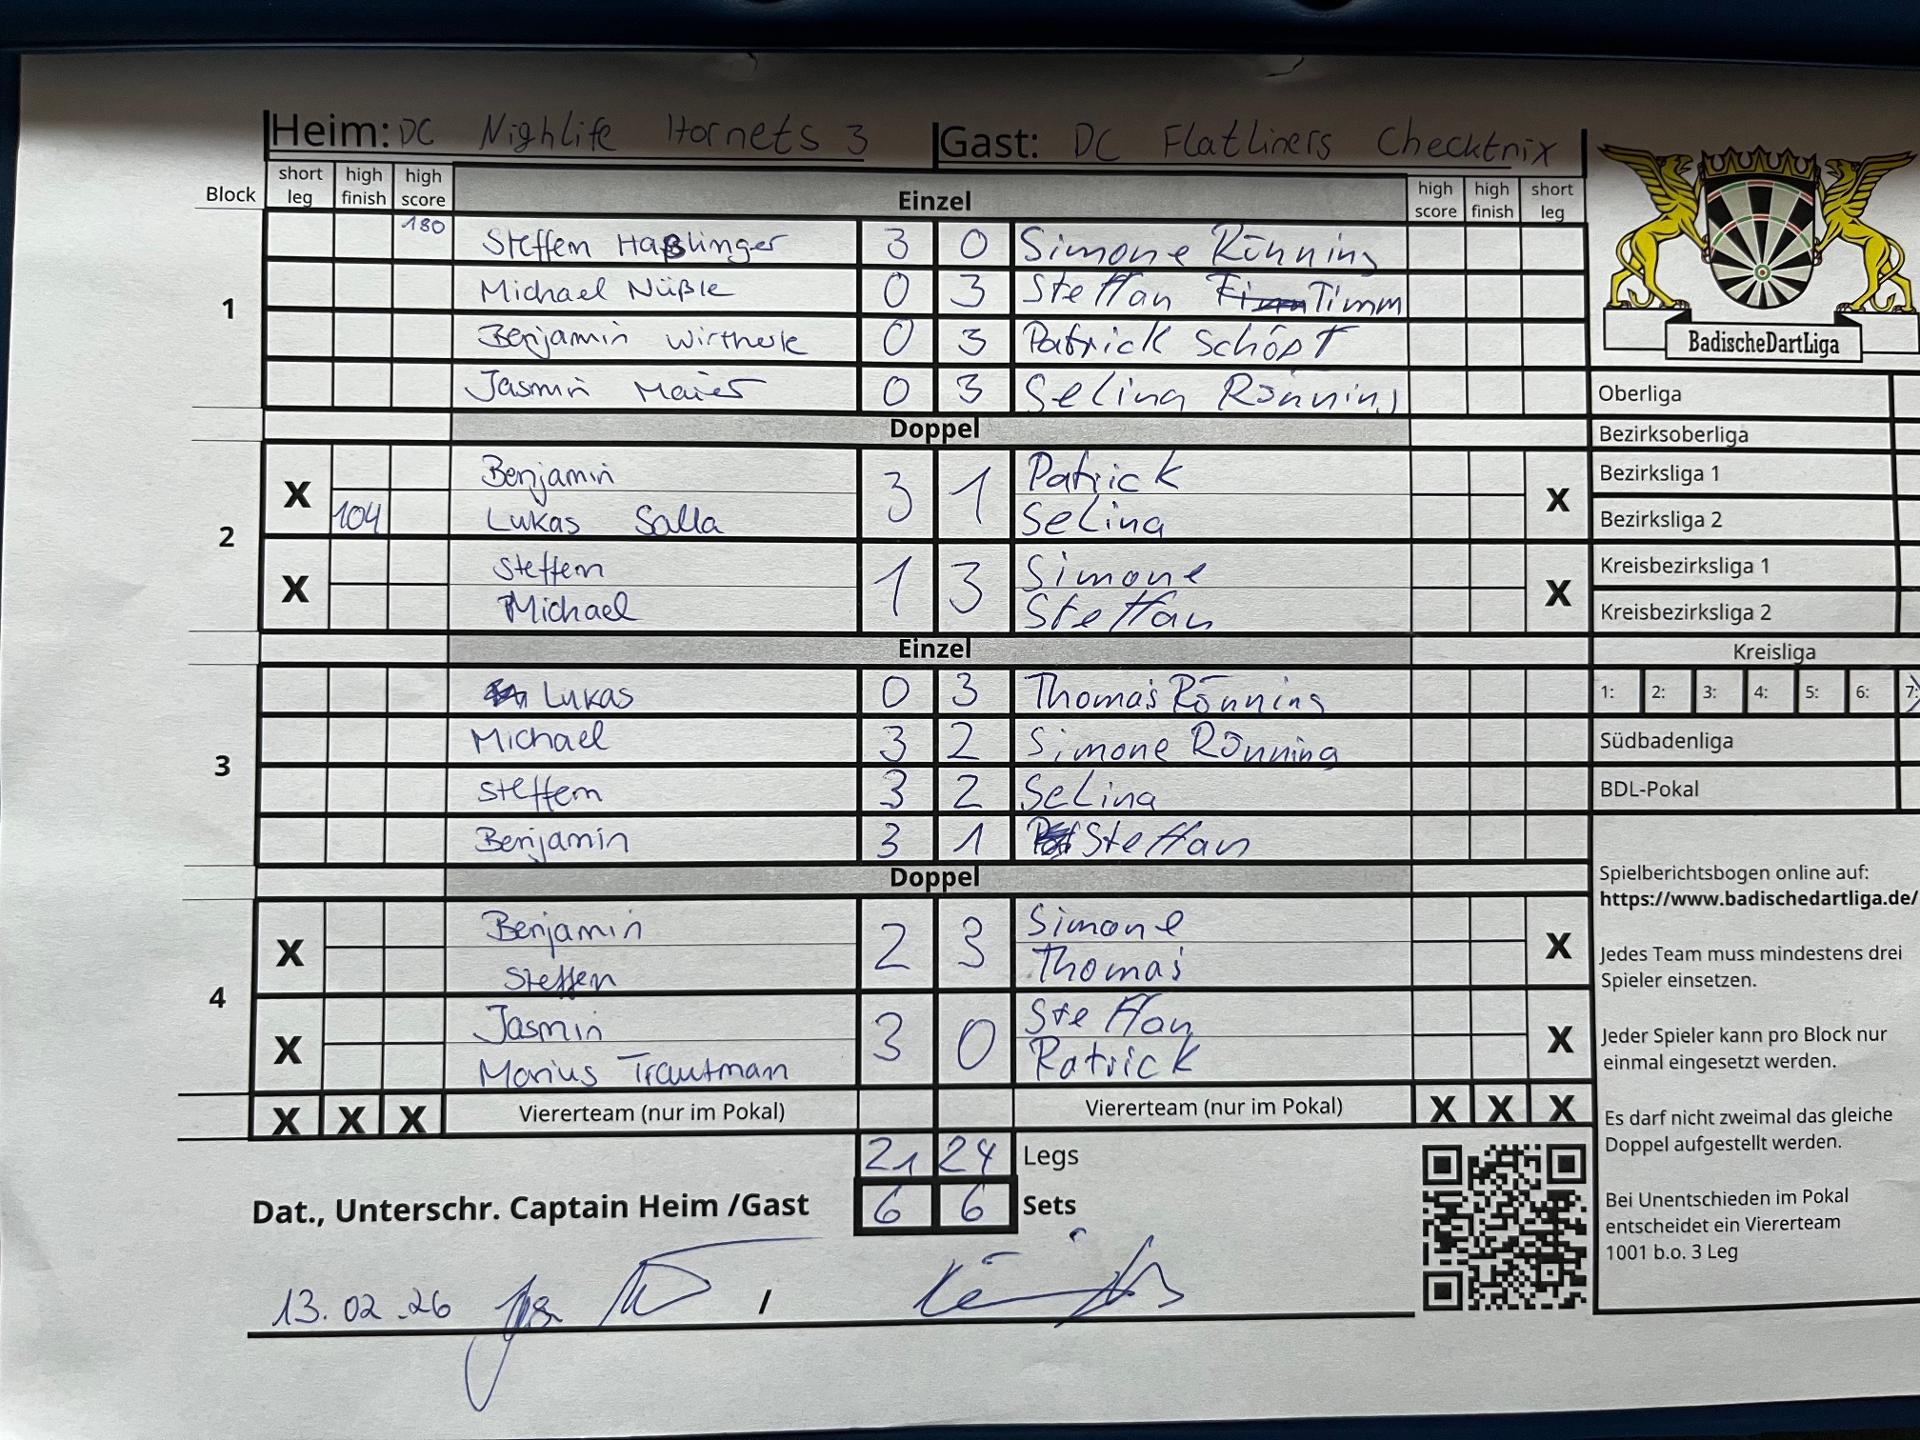 Heim: DC Nighlife Hornets 3 Gast: DC Flatliners Checktnix
Block short leg high finish high score Einzel high score high finish short leg
1
180 Steffen Haßlinger 3 0 Simone Rönning
Michael Nüßle 0 3 Steffan Timm
Benjamin 0 3 Patrick Schöpf
Jasmin Maier 0 3 Selina Rönning
BadischeDartLiga
Doppel
2
X Benjamin 3 1 Patrick X
104 Lukas Salla Selina
X Steffen 1 3 Simone X
Michael Steffan
Einzel
3
Lukas 0 3 Thomas Rönning
Michael 3 2 Simone Rönning
Steffen 3 2 Selina
Benjamin 3 1 Steffan
Doppel
4
X Benjamin 2 3 Simone X
Steffen Thomas
X Jasmin 3 0 Steffan X
Marius Trautmann Patrick
X X X Viererteam (nur im Pokal) Viererteam (nur im Pokal) X X X
21 24 Legs
Dat., Unterschr. Captain Heim /Gast 6 6 Sets
13.02.26 /
Oberliga
Bezirksoberliga
Bezirksliga 1
Bezirksliga 2
Kreisbezirksliga 1
Kreisbezirksliga 2
Kreisliga
1: 2: 3: 4: 5: 6: 7:
Südbadenliga
BDL-Pokal
Spielberichtsbogen online auf:
https://www.badischedartliga.de/
Jedes Team muss mindestens drei
Spieler einsetzen.
Jeder Spieler kann pro Block nur
einmal eingesetzt werden.
Es darf nicht zweimal das gleiche
Doppel aufgestellt werden.
Bei Unentschieden im Pokal
entscheidet ein Viererteam
1001 b.o. 3 Leg